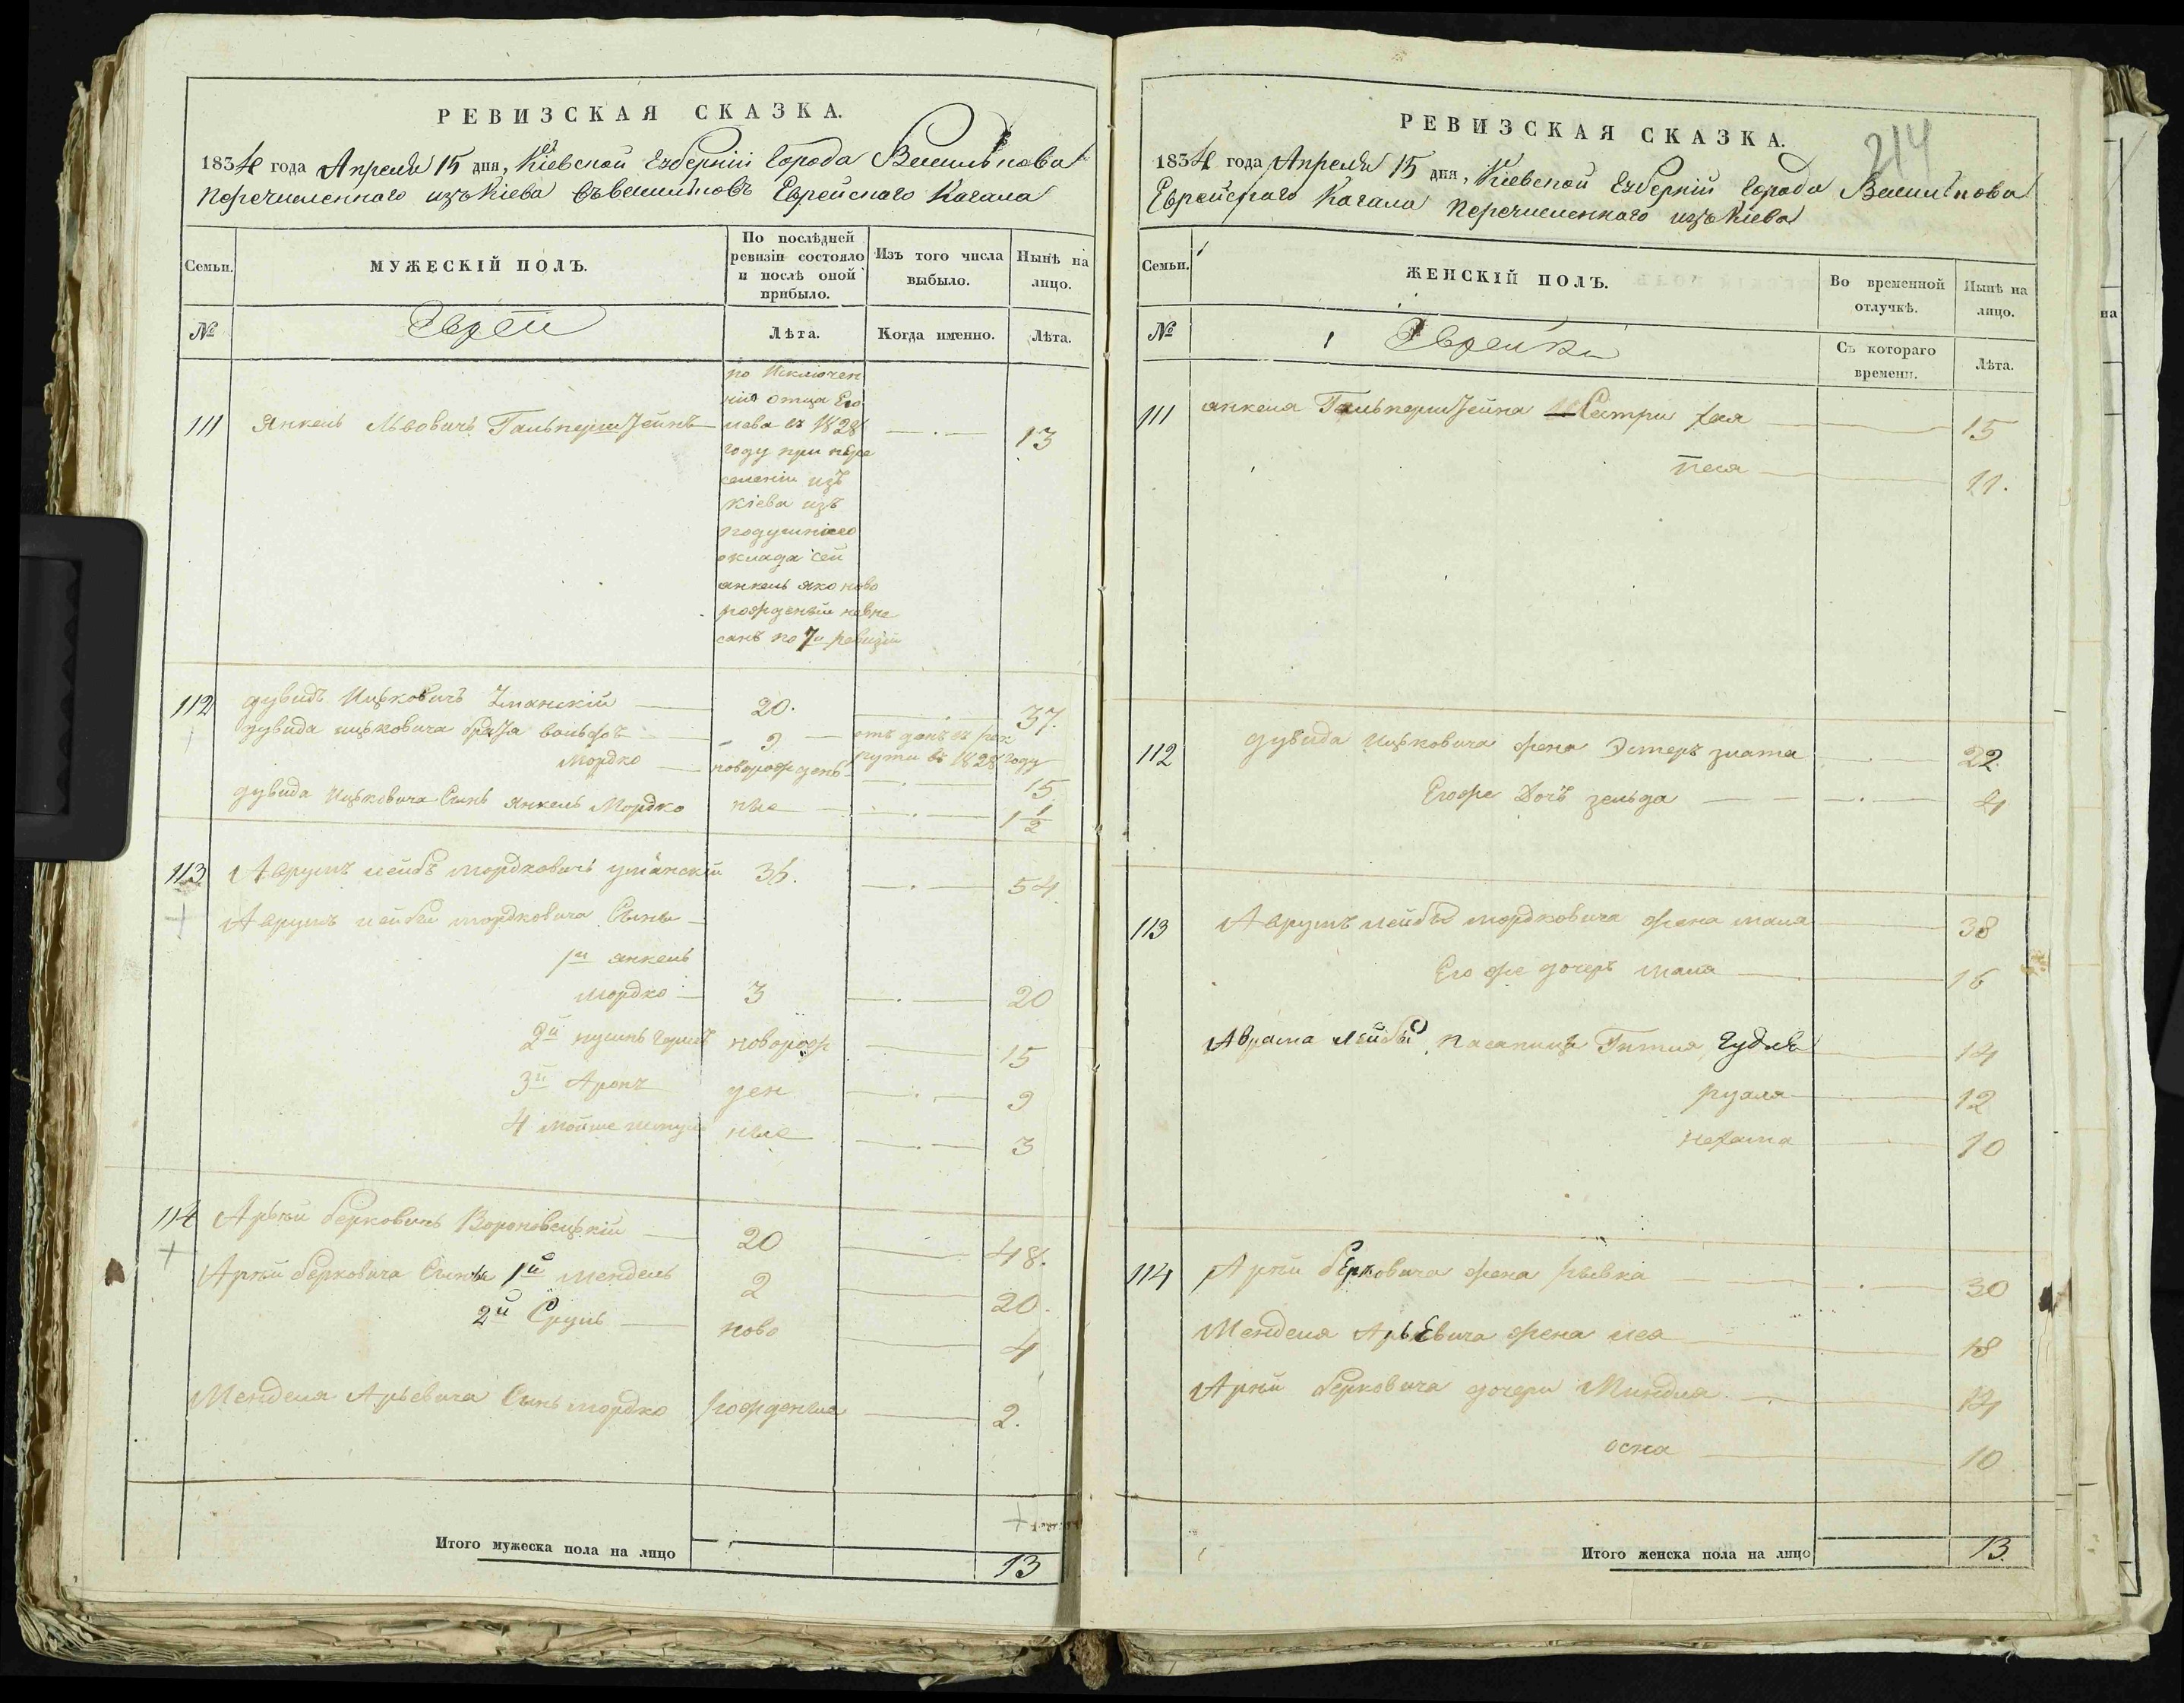 РЕВИЗСКАЯ СКАЗКА.
1834 года Апреля 15 дня, Кіевской Губерніи Города Василькова
перечисленнаго изъ Кіева въ Васильковъ Еврейскаго Кагала
Семьи.
МУЖЕСКІЙ ПОЛЪ.
По послѣдней ревизіи состояло и послѣ оной прибыло.
Изъ того числа выбыло.
Нынѣ на лицо.
№
Евреи
Лѣта.
Когда именно.
Лѣта.
111 Янкель Львовичъ Гальперштейнъ —.— 13
по Исключен
ніи отца Его
лева въ 1828
году при пере
селеніи изъ
Кіева изъ
подушнаго
оклада сей
янкель яко ново
рожденый невпи
санъ по 7й ревизіи
112 дувидъ Ицьковичъ Уманскій — 20. 37.
дувида ицьковича братья вольфъ — 9 — отъданъ въ рек
руты въ 1828 году
Мордко — новорожден —.— 15
дувида Ицьковича Сынъ янкель Мордко ные —.— 1 1/2
113 Аврумъ лейбъ мордковичъ уманскій 35. —.— 54
Аврумъ лейбы мордковича Сыны
1й янкель
мордко — 3 —.— 20
2й новорож — 15
3й Аронъ ден —.— 9
4 мойше ные —.— 3
114 Арьй берковичъ Вороновецькій — 20 — 48.
Арьй берковича Сынья 1й мендель 2 — 20.
2й Сруль — ново — 4
Менделя Арьевича Сынъ мордко рожденыя — 2.
Итого мужеска пола на лицо 13
214
РЕВИЗСКАЯ СКАЗКА.
1834 года Апреля 15 дня, Кіевской Губерніи Города Василькова
Еврейскаго Кагала перечисленнаго изъ Кіева
Семьи.
ЖЕНСКІЙ ПОЛЪ.
Во временной отлучкѣ.
Нынѣ на лицо.
№
Еврейки
Съ котораго времени.
Лѣта.
111 янкеля Гальперштейна Сестри хая — 15
песя — 11.
112 дувида Ицьковича жена Эстеръ злата —.— 22
Егоже Дочь зельда — —.— 4
113 Аврумъ лейбы мордковича жена маля — 38
Его же дочеръ мала — 16
Аврама лейбы Гитля Гудля — 14
рузля — 12
нехама — 10
114 Арьй берковича жена рывка — —.— 30
Менделя Арьевича жена лея — 18
Арьй берковича дочери Миндля — 14
осна — 10
Итого женска пола на лицо 13.